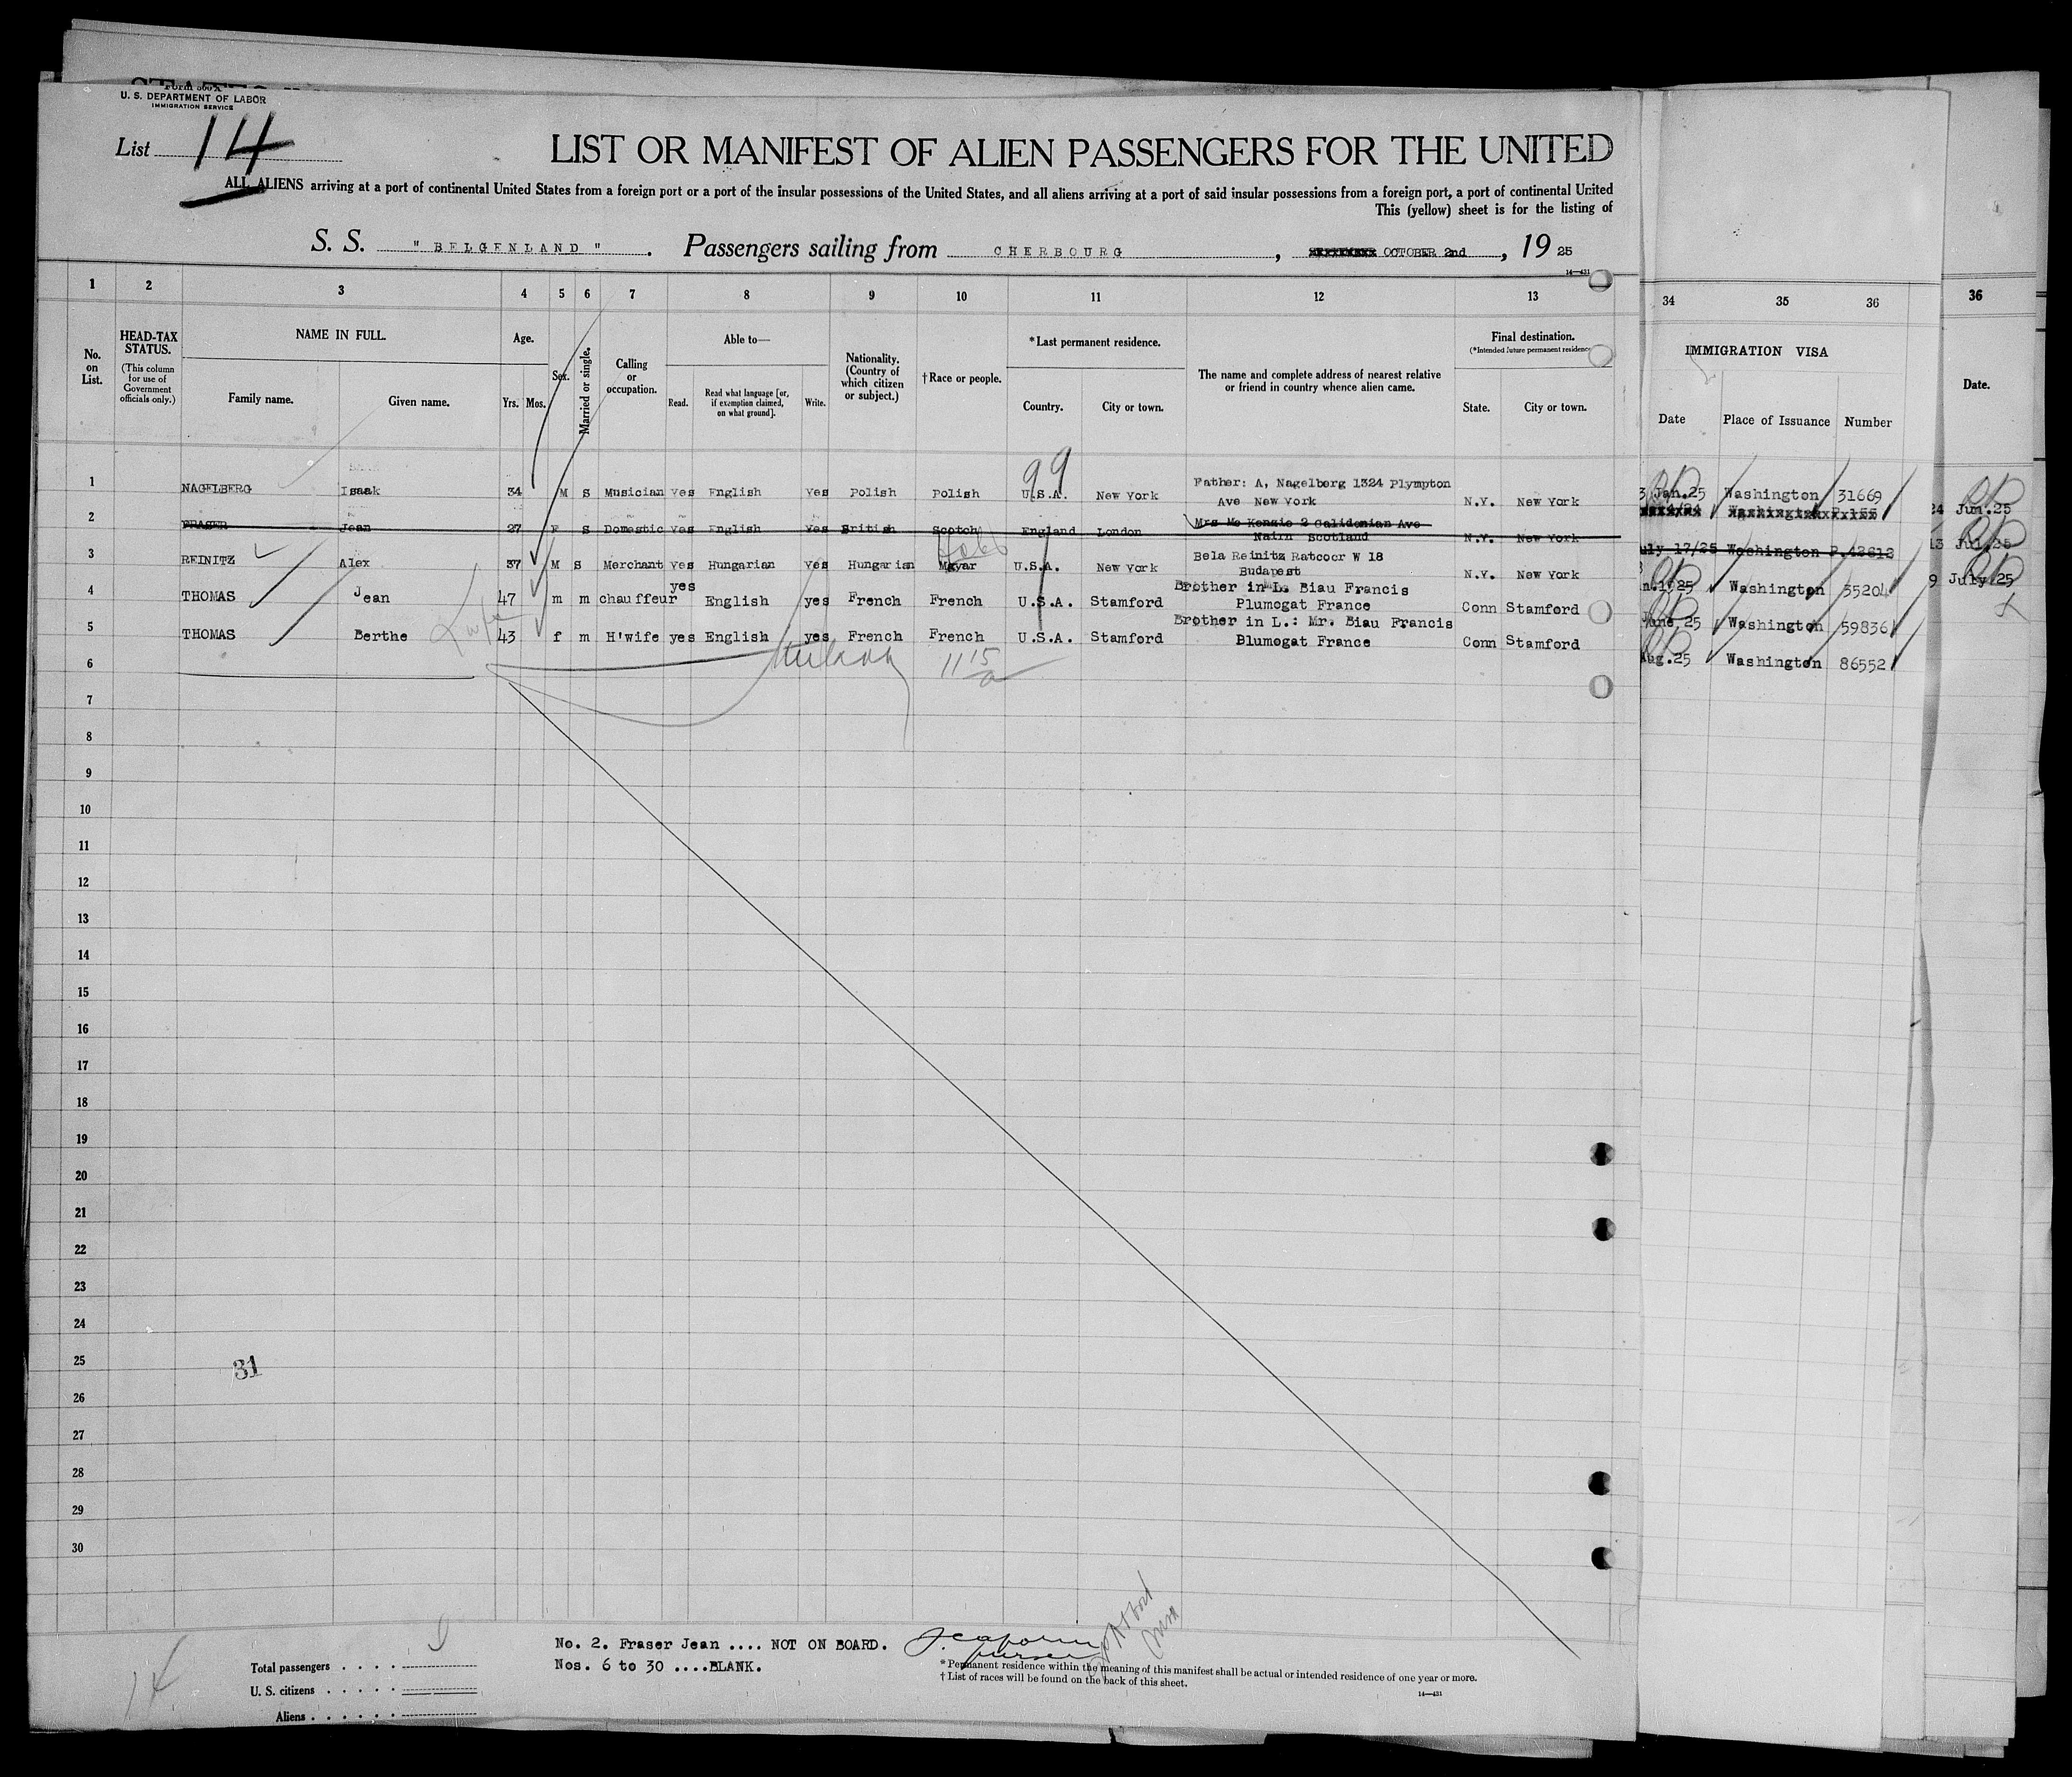 Form 500 A
U. S. DEPARTMENT OF LABOR
IMMIGRATION SERVICE
List 14
LIST OR MANIFEST OF ALIEN PASSENGERS FOR THE UNITED
ALL ALIENS arriving at a port of continental United States from a foreign port or a port of the insular possessions of the United States, and all aliens arriving at a port of said insular possessions from a foreign port, a port of continental United
This (yellow) sheet is for the listing of
S. S. " BELGENLAND " . Passengers sailing from CHERBOURG , OCTOBER 2nd , 19 25
14—431
1 2 3 4 5 6 7 8 9 10 11 12 13 34 35 36 36
No. on List.
HEAD-TAX STATUS. (This column for use of Government officials only.)
NAME IN FULL.
Family name. Given name.
Age.
Yrs. Mos.
Sex.
Married or single.
Calling or occupation.
Able to—
Read. Read what language [or, if exemption claimed, on what ground]. Write.
Nationality. (Country of which citizen or subject.)
†Race or people.
*Last permanent residence.
Country. City or town.
The name and complete address of nearest relative or friend in country whence alien came.
Final destination.
(*Intended future permanent residence
State. City or town.
IMMIGRATION VISA
Date Place of Issuance Number
Date.
99
1 NAGELBERG Isaak 34 M S Musician Yes English Yes Polish Polish U.S.A. New York Father: A, Nagelberg 1324 Plympton Ave New York N.Y. New York
2 FRASER Jean 27 F S Domestic Yes English Yes British Scotch England London Mrs Mc Kenzie 2 Calidonian Ave Nairn Scotland N.Y. New York
3 REINITZ Alex 37 M S Merchant yes Hungarian Yes Hungarian Magyar U.S.A. New York Bela Reinitz Ratcocr W 18 Budapest N.Y. New York
4 THOMAS Jean 47 m m chauffeur yes English yes French French U.S.A. Stamford Brother in L. Biau Francis Plumogat France Conn Stamford
5 THOMAS Berthe 43 f m H'wife yes English yes French French U.S.A. Stamford Brother in L.: Mr. Biau Francis Blumogat France Conn Stamford
3 Jan.25 Washington 31669
uly 17/25 Washington P.42612
n.1925 Washington 35204
June,25 Washington 59836
Aug.25 Washington 86552
24 Jun.25
13 Jul.25
9 July.25
11 15
6
7
8
9
10
11
12
13
14
15
16
17
18
19
20
21
22
23
24
25
26
27
28
29
30
31
14
No. 2. Fraser Jean .... NOT ON BOARD.
Nos. 6 to 30 ....BLANK.
purser
Total passengers . . . .
U. S. citizens . . . . .
Aliens . . . . . .
* Permanent residence within the meaning of this manifest shall be actual or intended residence of one year or more.
† List of races will be found on the back of this sheet.
14—431